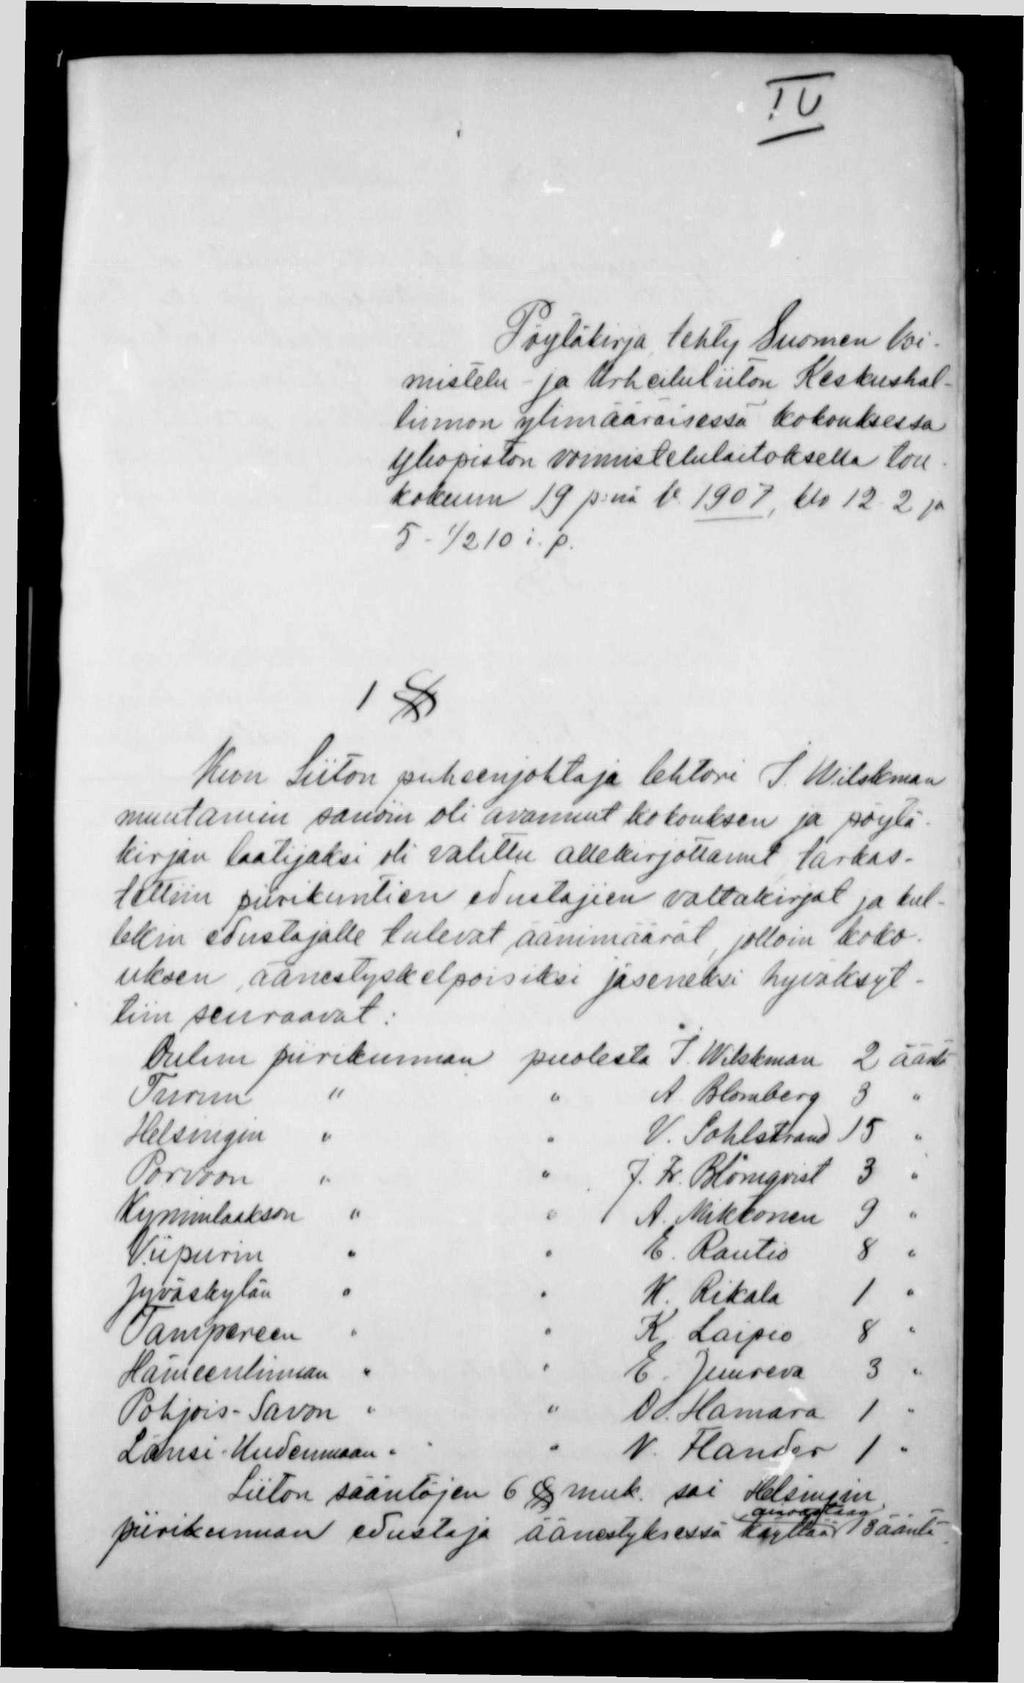 IV
Pöytäkirja, tehty Suomen Voi-
mistelu- ja Urheiluliiton Keskushal-
linnon ylimääräisessä kokouksessa
Yliopiston voimistelulaitoksella tou-
kokuun 19 p:nä v. 1907, klo 12-2 ja
5-1/210 i.p.
1 §
Kun Liiton puheenjohtaja lehtori I. Wilskman
muutamin sanoin oli avannut kokouksen ja pöytä-
kirjan laatijaksi oli valittu allekirjottanut, tarkas-
tettiin piirikuntien edustajien valtakirjat ja kul-
lekin edustajalle tulevat äänimäärät, jolloin koko-
uksen äänestyskelpoisiksi jäseneksi hyväksyt-
tiin seuraavat:
Oulun piirikunnan puolesta I. Wilskman 2 ääntä
Turun " " A. Blomberg 3 "
Helsingin " " V. Sohlstrand 15 "
Porvoon " " J. Fr. Blomqvist 3 "
Kyminlaakson " " A. Mikkonen 9 "
Viipurin " " E. Rautio 8 "
Jyväskylän " " K. Rikala 1 "
Tampereen " " K. Laipio 8 "
Hämeenlinnan " " E. Juureva 3 "
Pohjois-Savon " " O. Hamara 1 "
Länsi-Uudenmaan " " V. Flander 1 "
Liiton sääntöjen 6 § muk. sai Helsingin
piirikunnan edustaja äänestyksessä käyttää 13 ääntä.